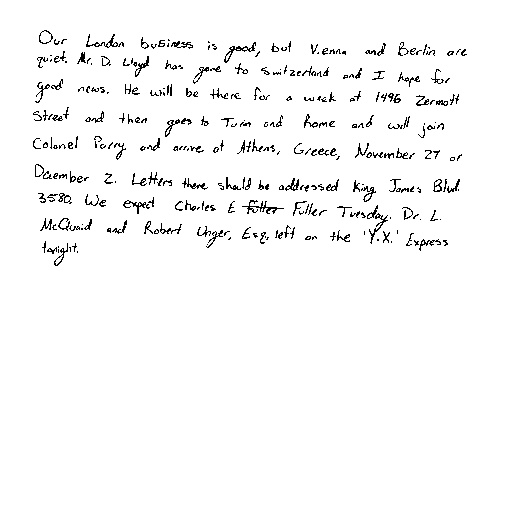 Our London business is good, but Vienna and Berlin are
quiet. Mr. D. Lloyd has gone to Switzerland and I hope for
good news. He will be there for a week at 1496 Zermott
Street and then goes to Turin and Rome and will join
Colonel Parry and arrive at Athens, Greece, November 27 or
December 2. Letters there should be addressed King James Blvd.
3580. We expect Charles E Fuller Tuesday. Dr. L.
McQuaid and Robert Unger, Esq. left on the 'Y.X.' Express
tonight.